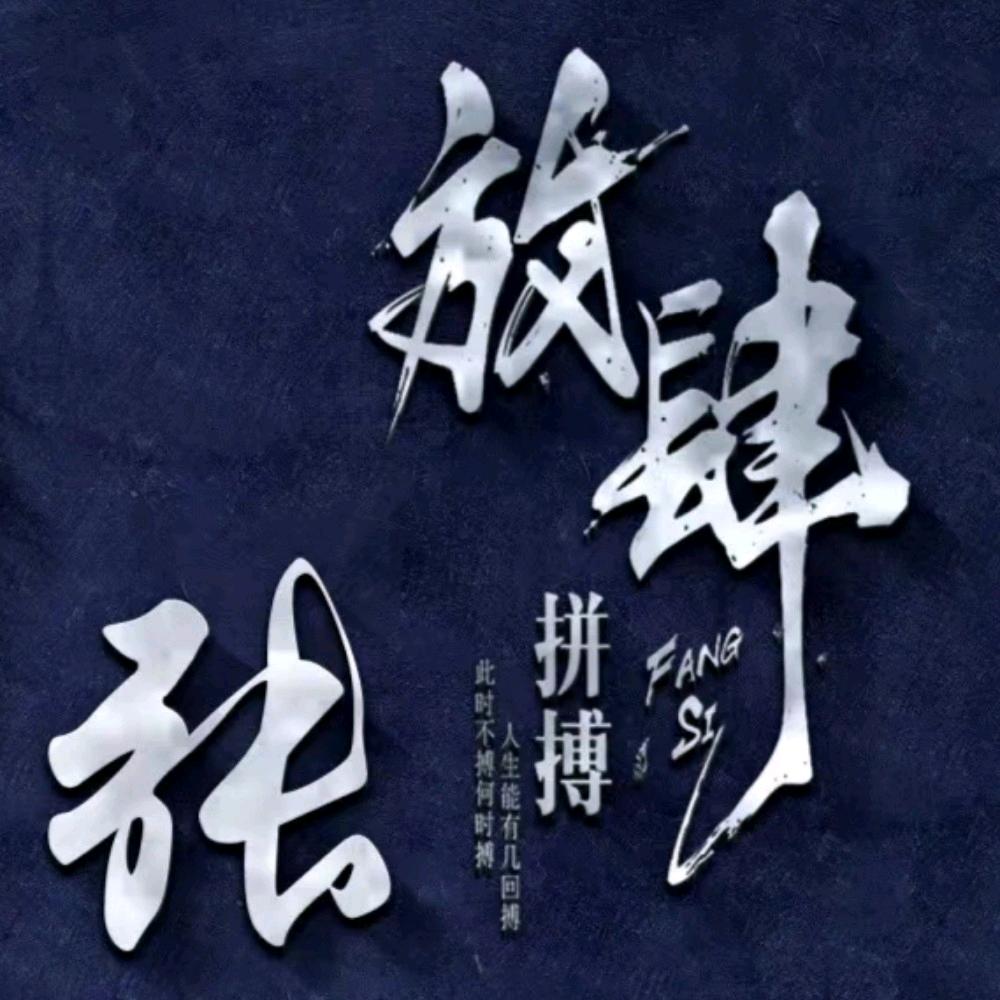 放肆
FANG
SI
拼搏
人生能有几回搏
此时不搏何时搏
张